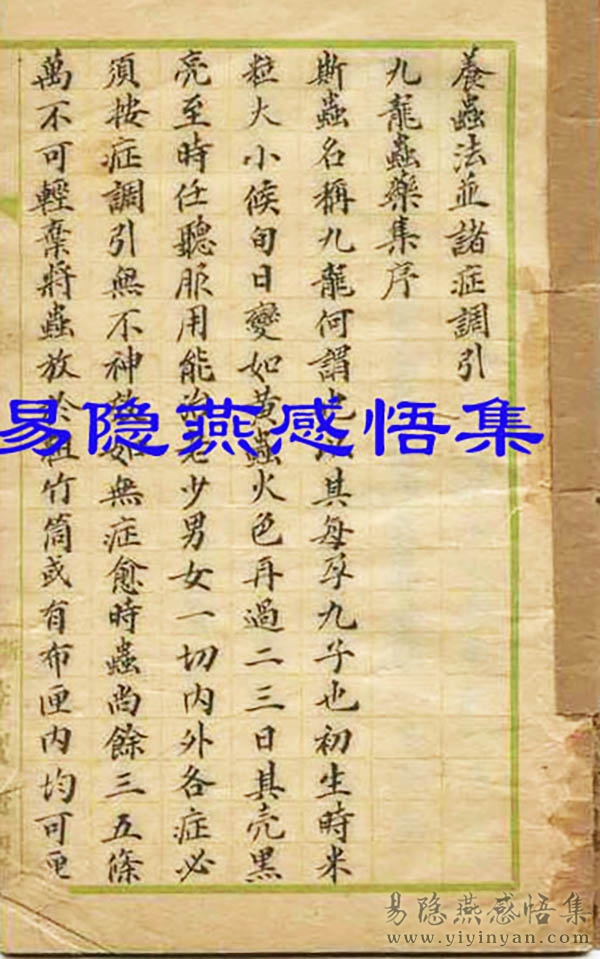 養蟲法並諸症調引
九龍蟲藥集序
斯蟲名稱九龍何謂也以其每孕九子也初生時米
粒大小候旬日變如黄蟲火色再過二三日其壳黑
亮至時任聽服用能治老少男女一切内外各症必
須按症調引無不神效如無症愈時蟲尚餘三五條
萬不可輕棄將蟲放於粗竹筒或有布匣内均可
易隐燕感悟集
易隐燕感悟集
www.yiyinyan.com